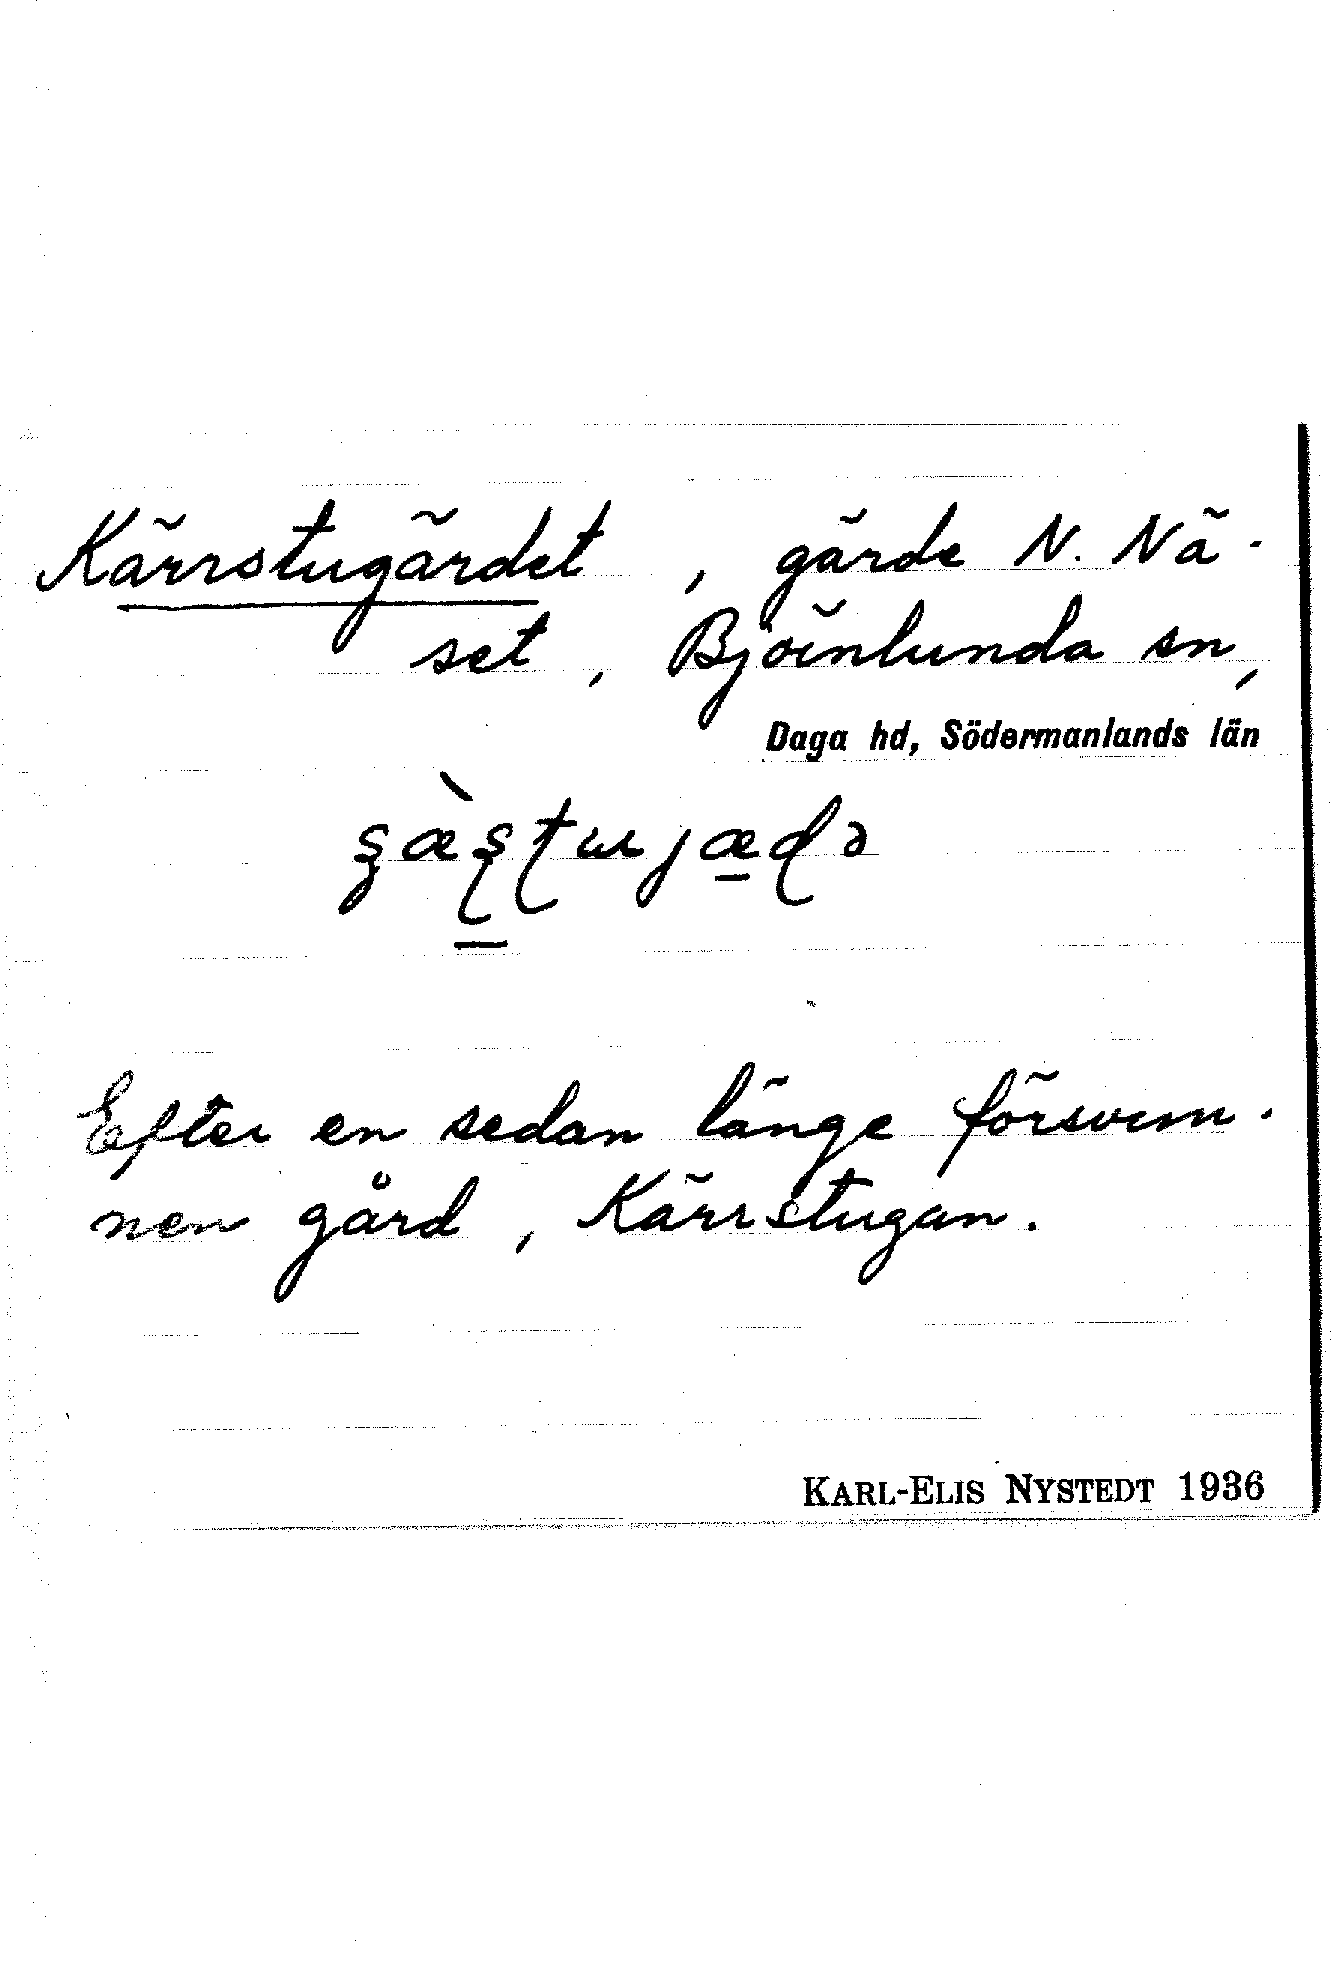 Kärrstugärdet, gärde N. Nä-
set, Björnlunda sn,
Daga hd, Södermanlands län
Efter en sedan länge försvun-
nen gård, Kärrstugan.
KARL-ELIS NYSTEDT 1936